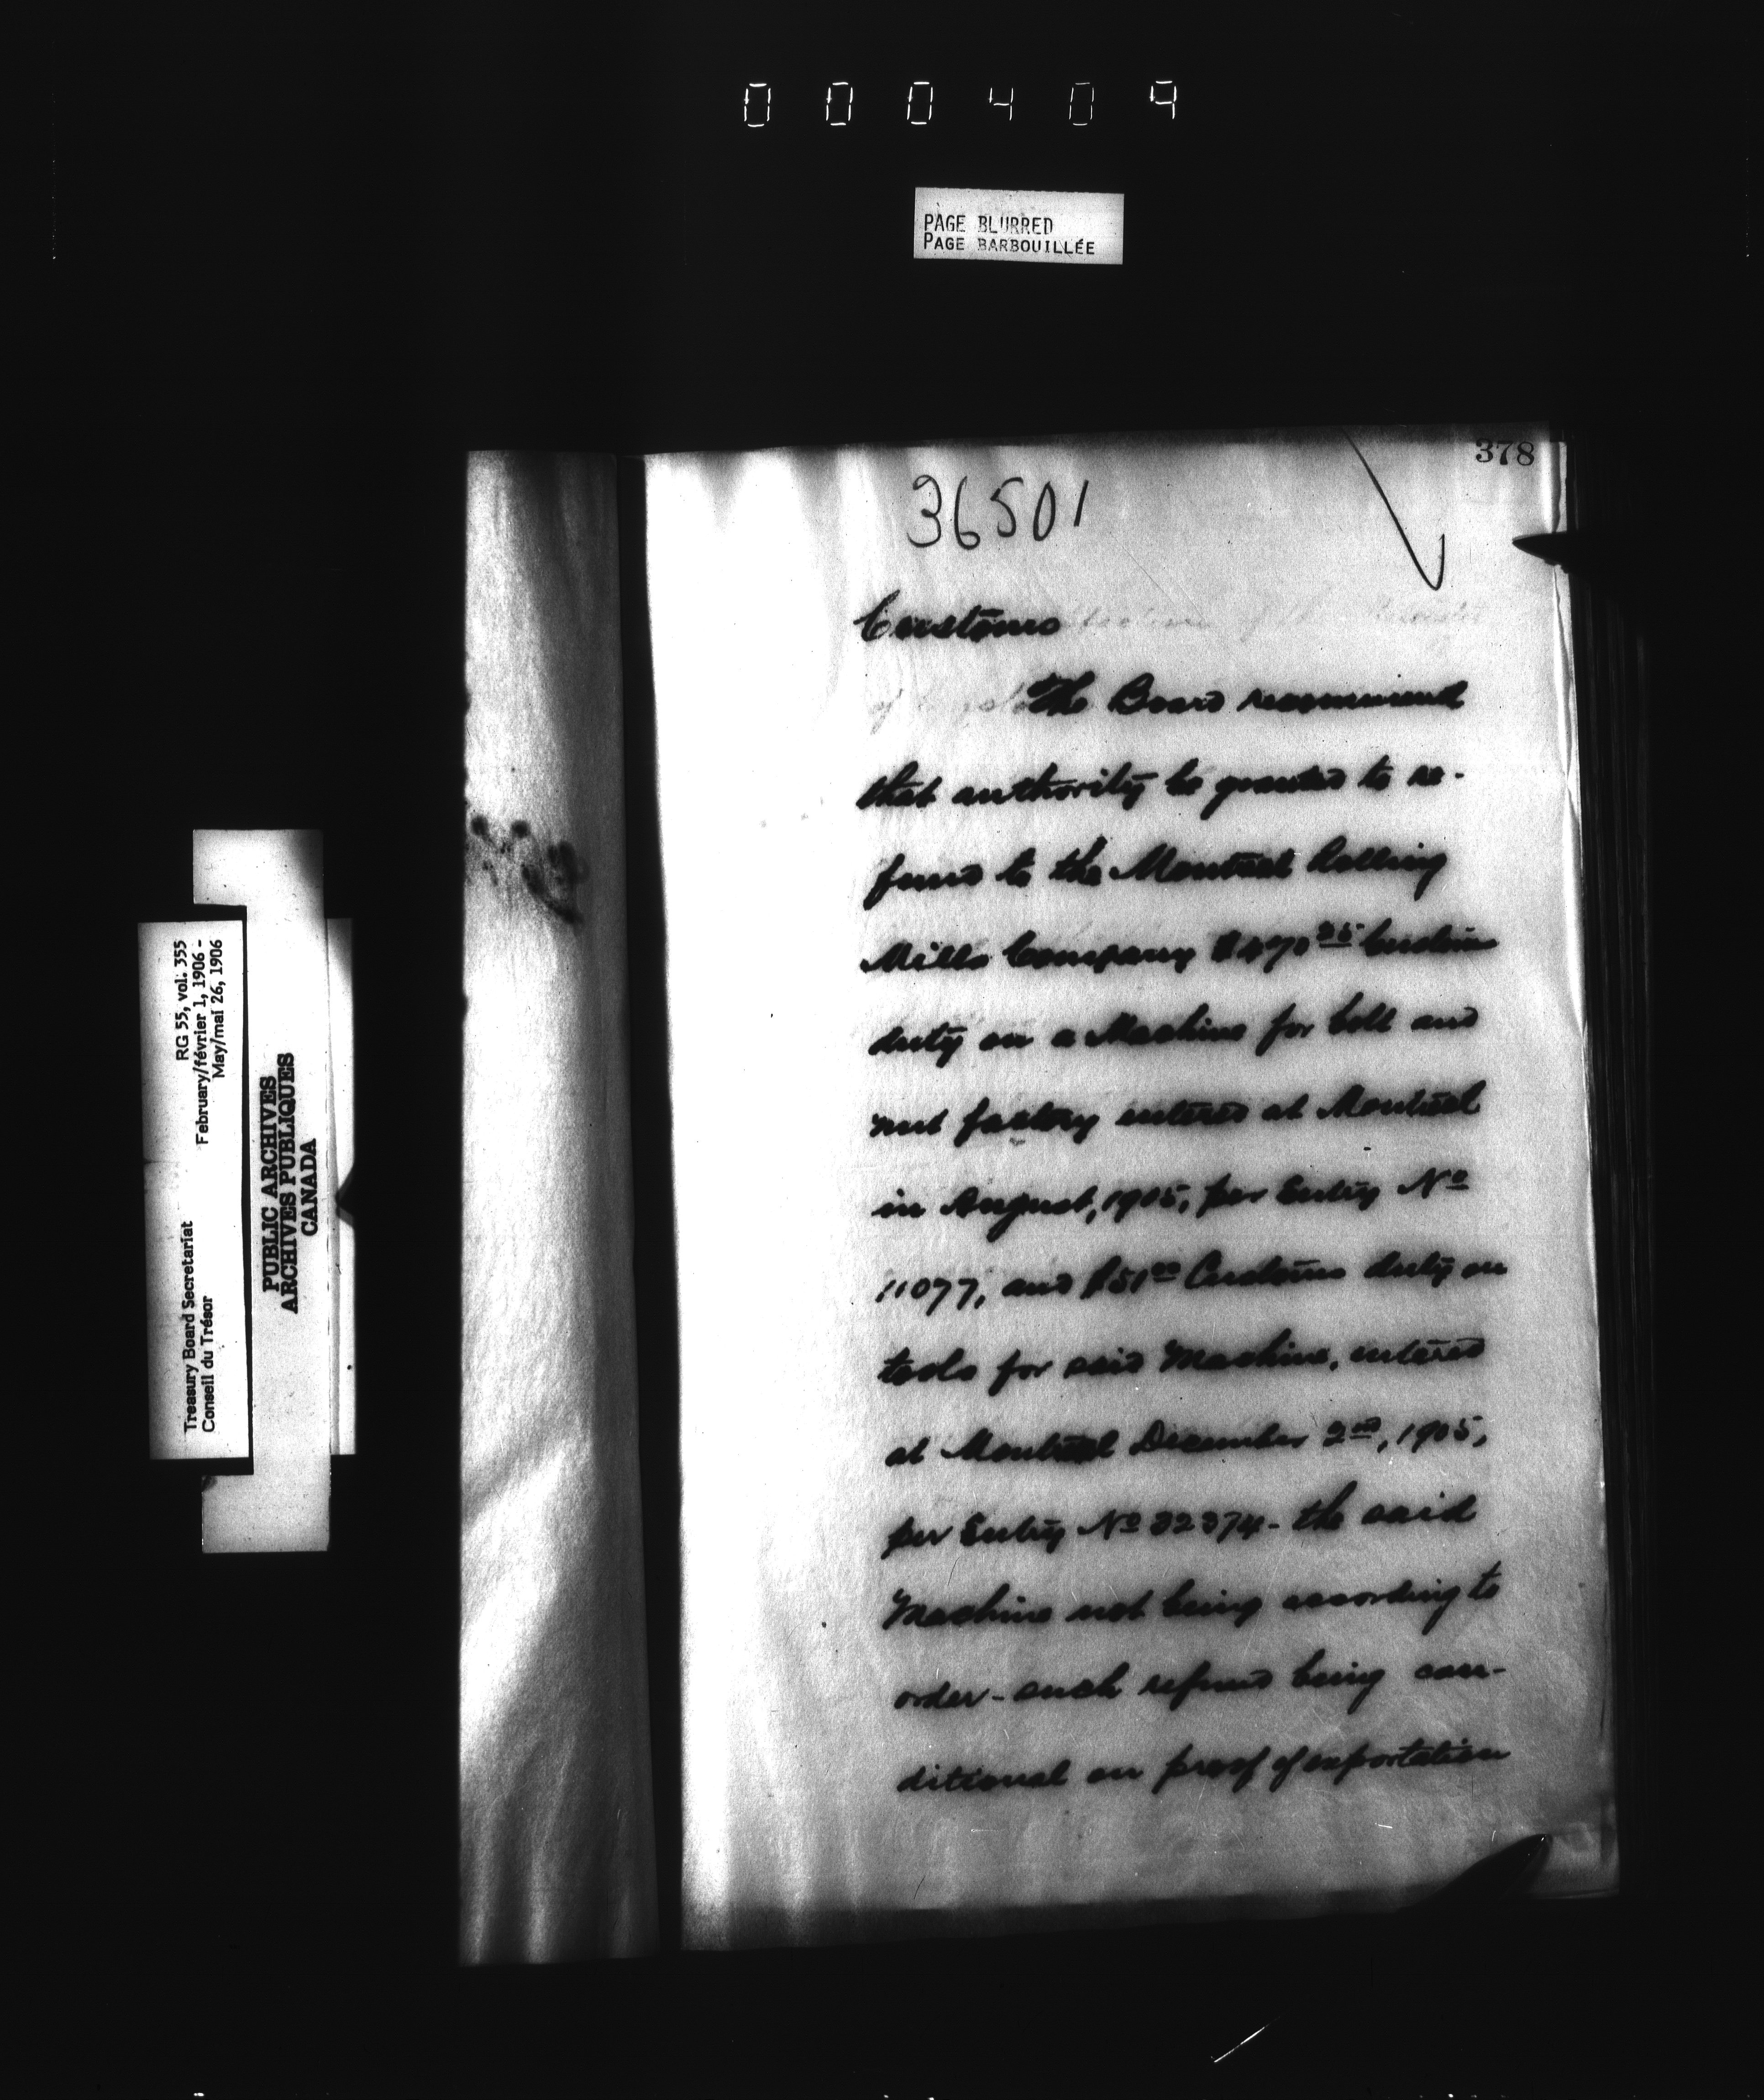 000409
PAGE BLURRED
PAGE BARBOUILLÉE
378
36501
Customs
The Board recommend
that authority be granted to re-
fund to the Montreal Rolling
Mills Company $470 25 Customs
duty on a Machine for bolt and
nut factory entered at Montreal
in August, 1905, per Entry No
11077, and $51 00 Customs duty on
tools for said Machine, entered
at Montreal December 2nd, 1905,
per Entry No 32374 - the said
Machine not being according to
order - such refund being con-
ditional on proof of exportation
RG 55, vol. 355
February/février 1, 1906 -
May/mai 26, 1906
Treasury Board Secretariat
Conseil du Trésor
PUBLIC ARCHIVES
ARCHIVES PUBLIQUES
CANADA